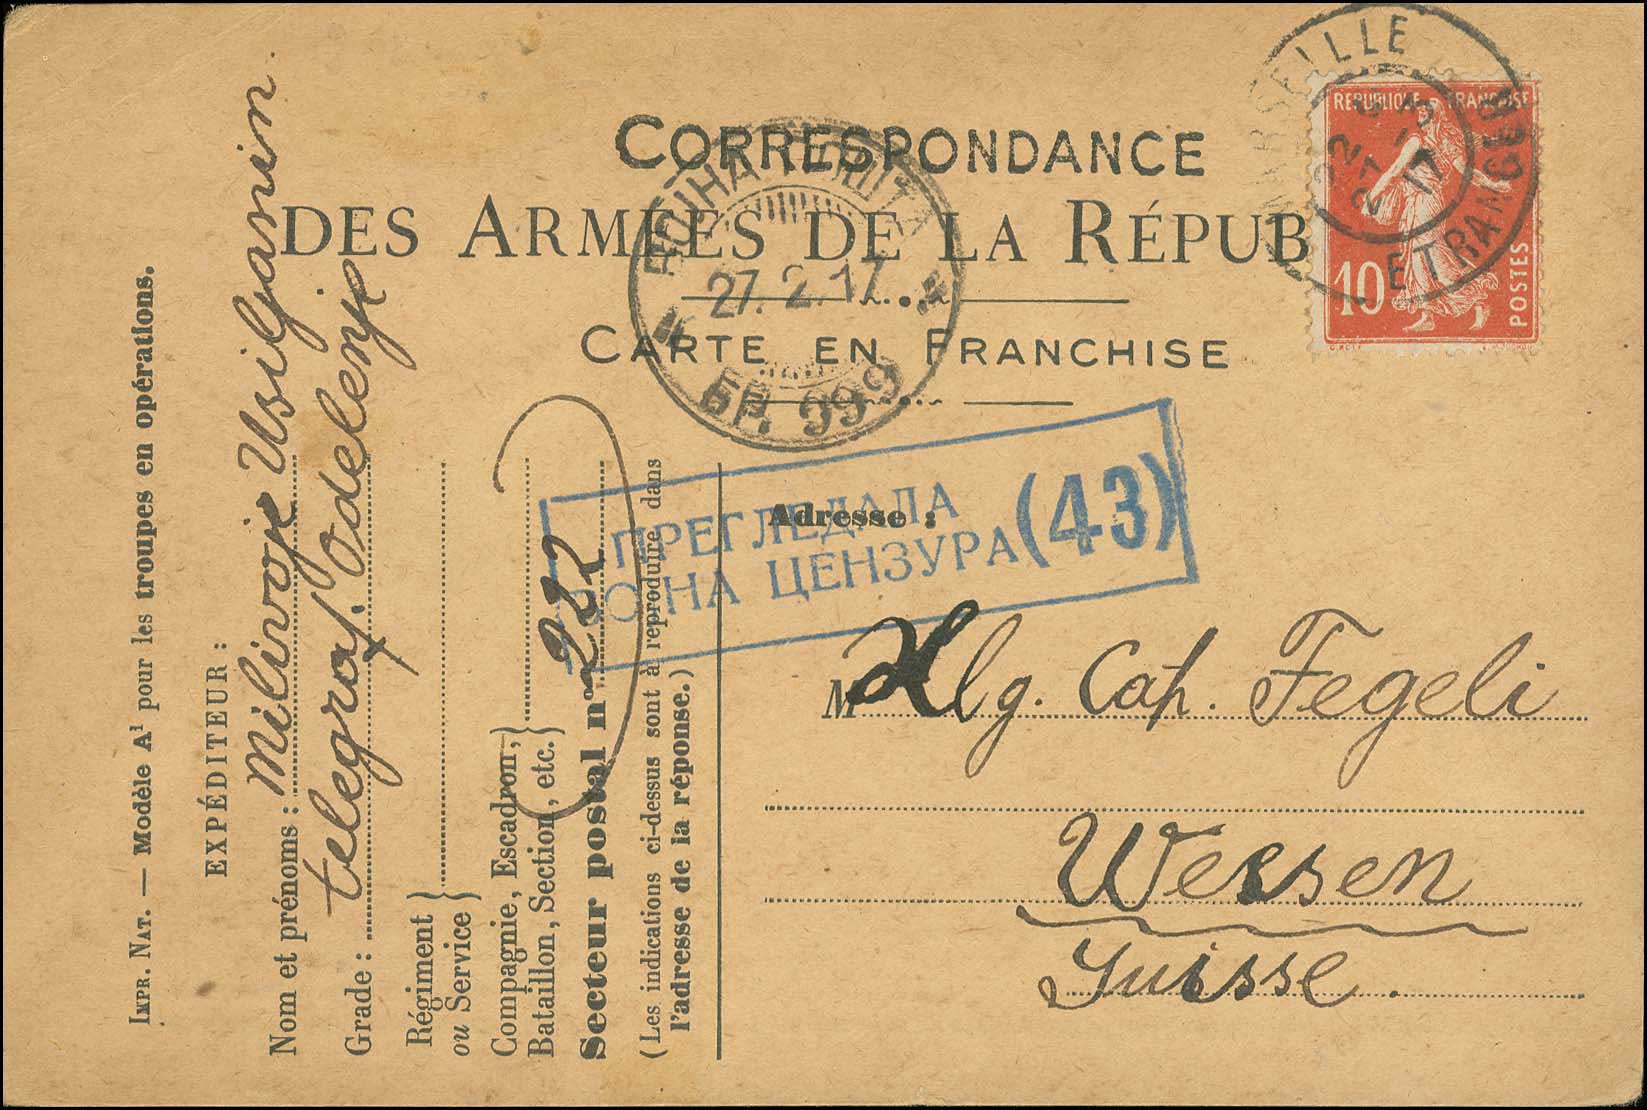 CORRESPONDANCE
DES ARMÉES DE LA RÉPUB
CARTE EN FRANCHISE
MARSEILLE
ETRANGER
27 - 3
17
REPUBLIQUE FRANÇAISE
10
POSTES
ВОЈНА ПОШТА
27. 2. 17
БР. 999
ПРЕГЛЕДАЛА
ВОЈНА ЦЕНЗУРА (43)
IMPR. NAT. — Modèle A¹ pour les troupes en opérations.
EXPÉDITEUR :
Nom et prénoms : Milivoje Vasiljanin.
Grade : telegraf. Odelenje
Régiment
ou Service
Compagnie, Escadron,
Bataillon, Section, etc.
Secteur postal nº 222
(Les indications ci-dessus sont à reproduire dans
l'adresse de la réponse.)
Adresse :
M Hlg. Cap. Fegeli
Weesen
Suisse.